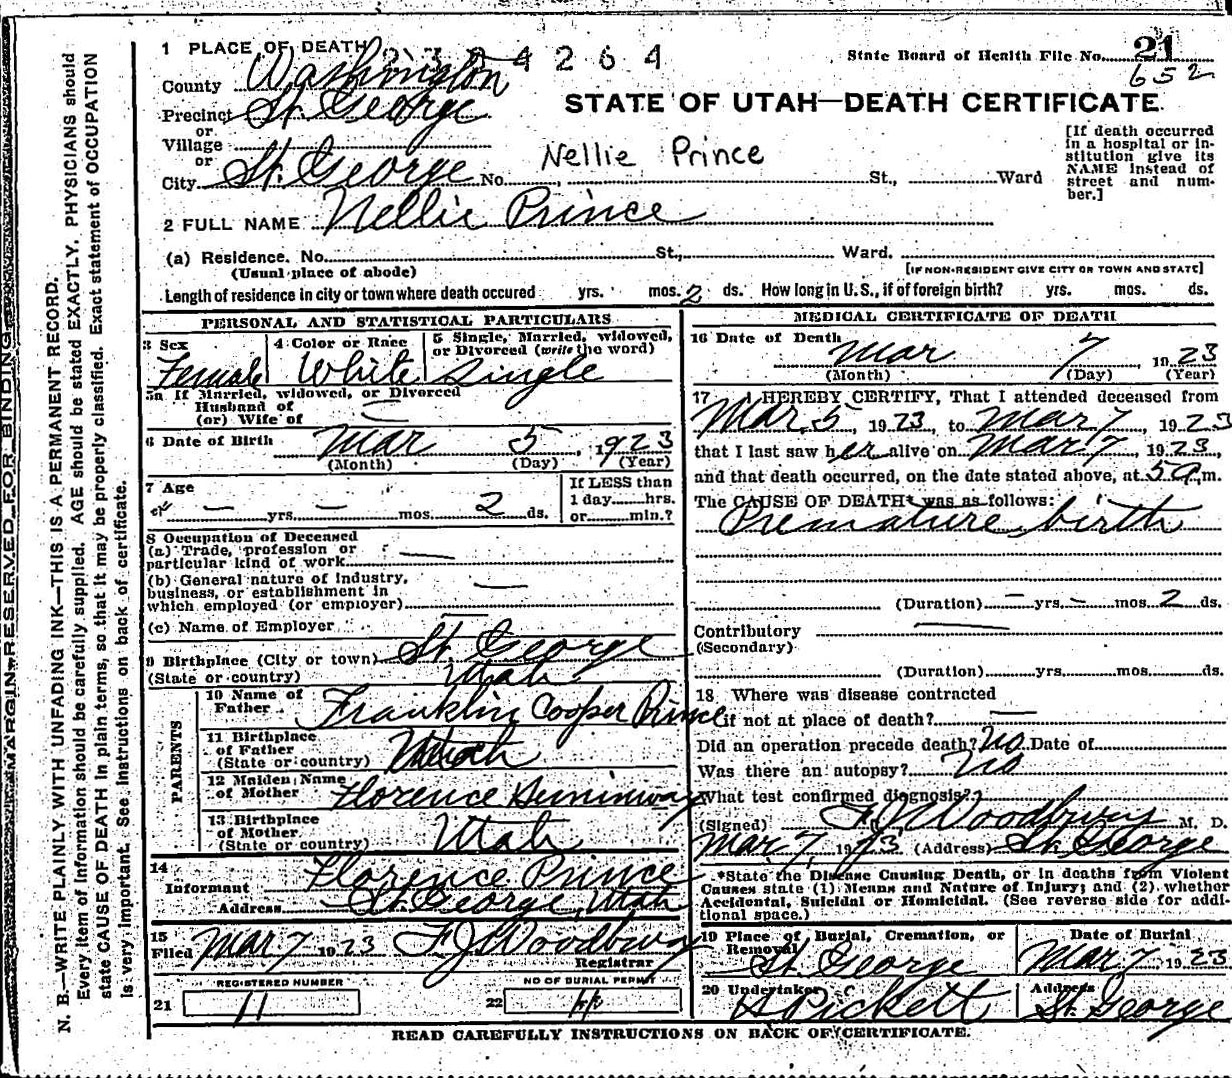 MARGIN RESERVED FOR BINDING
N. B.—WRITE PLAINLY WITH UNFADING INK—THIS IS A PERMANENT RECORD.
Every item of information should be carefully supplied. AGE should be stated EXACTLY. PHYSICIANS should
state CAUSE OF DEATH in plain terms, so that it may be properly classified. Exact statement of OCCUPATION
is very important. See instructions on back of certificate.
1 PLACE OF DEATH
4 2 6 4
State Board of Health File No. 21
652
County Washington
STATE OF UTAH—DEATH CERTIFICATE
Precinct St. George
or
Village
or
City St. George No. St., Ward
Nellie Prince
[If death occurred
in a hospital or in-
stitution give its
NAME instead of
street and num-
ber.]
2 FULL NAME Nellie Prince
(a) Residence. No. St., Ward.
(Usual place of abode) [IF NON-RESIDENT GIVE CITY OR TOWN AND STATE]
Length of residence in city or town where death occured yrs. mos. 2 ds. How long in U. S., if of foreign birth? yrs. mos. ds.
PERSONAL AND STATISTICAL PARTICULARS
3 Sex Female
4 Color or Race White
5 Single, Married, widowed,
or Divorced (write the word)
Single
5a If Married, widowed, or Divorced
Husband of
(or) Wife of —
6 Date of Birth Mar 5, 1923
(Month) (Day) (Year)
7 Age
— yrs. — mos. 2 ds.
If LESS than
1 day hrs.
or min.?
8 Occupation of Deceased
(a) Trade, profession or
particular kind of work —
(b) General nature of industry,
business, or establishment in
which employed (or employer) —
(c) Name of Employer —
9 Birthplace (City or town) St. George
(State or country) Utah
PARENTS
10 Name of
Father Franklin Cooper Prince
11 Birthplace
of Father
(State or country) Utah
12 Maiden Name
of Mother Florence
13 Birthplace
of Mother
(State or country) Utah
14
Informant Florence Prince
Address St. George, Utah
15
Filed Mar 7 1923 F. J. Woodbury
Registrar
REGISTERED NUMBER
21 11
NO OF BURIAL PERMIT
22
MEDICAL CERTIFICATE OF DEATH
16 Date of Death
Mar 7 1923
(Month) (Day) (Year)
17 I HEREBY CERTIFY, That I attended deceased from
Mar. 5, 1923, to Mar 7, 1923
that I last saw her alive on Mar 7, 1923,
and that death occurred, on the date stated above, at 5 a. m.
The CAUSE OF DEATH* was as follows:
Premature birth
(Duration) — yrs. — mos. 2 ds.
Contributory —
(Secondary)
(Duration) yrs. mos. ds.
18 Where was disease contracted
if not at place of death? —
Did an operation precede death? No Date of
Was there an autopsy? No
What test confirmed diagnosis?
(Signed) F. J. Woodbury M. D.
Mar. 7, 1923 (Address) St. George
*State the Disease Causing Death, or in deaths from Violent
Causes state (1) Means and Nature of Injury; and (2) whether
Accidental, Suicidal or Homicidal. (See reverse side for addi-
tional space.)
19 Place of Burial, Cremation, or
Removal
St. George
Date of Burial
Mar 7, 1923
20 Undertaker Pickett
Address
St. George
READ CAREFULLY INSTRUCTIONS ON BACK OF CERTIFICATE.